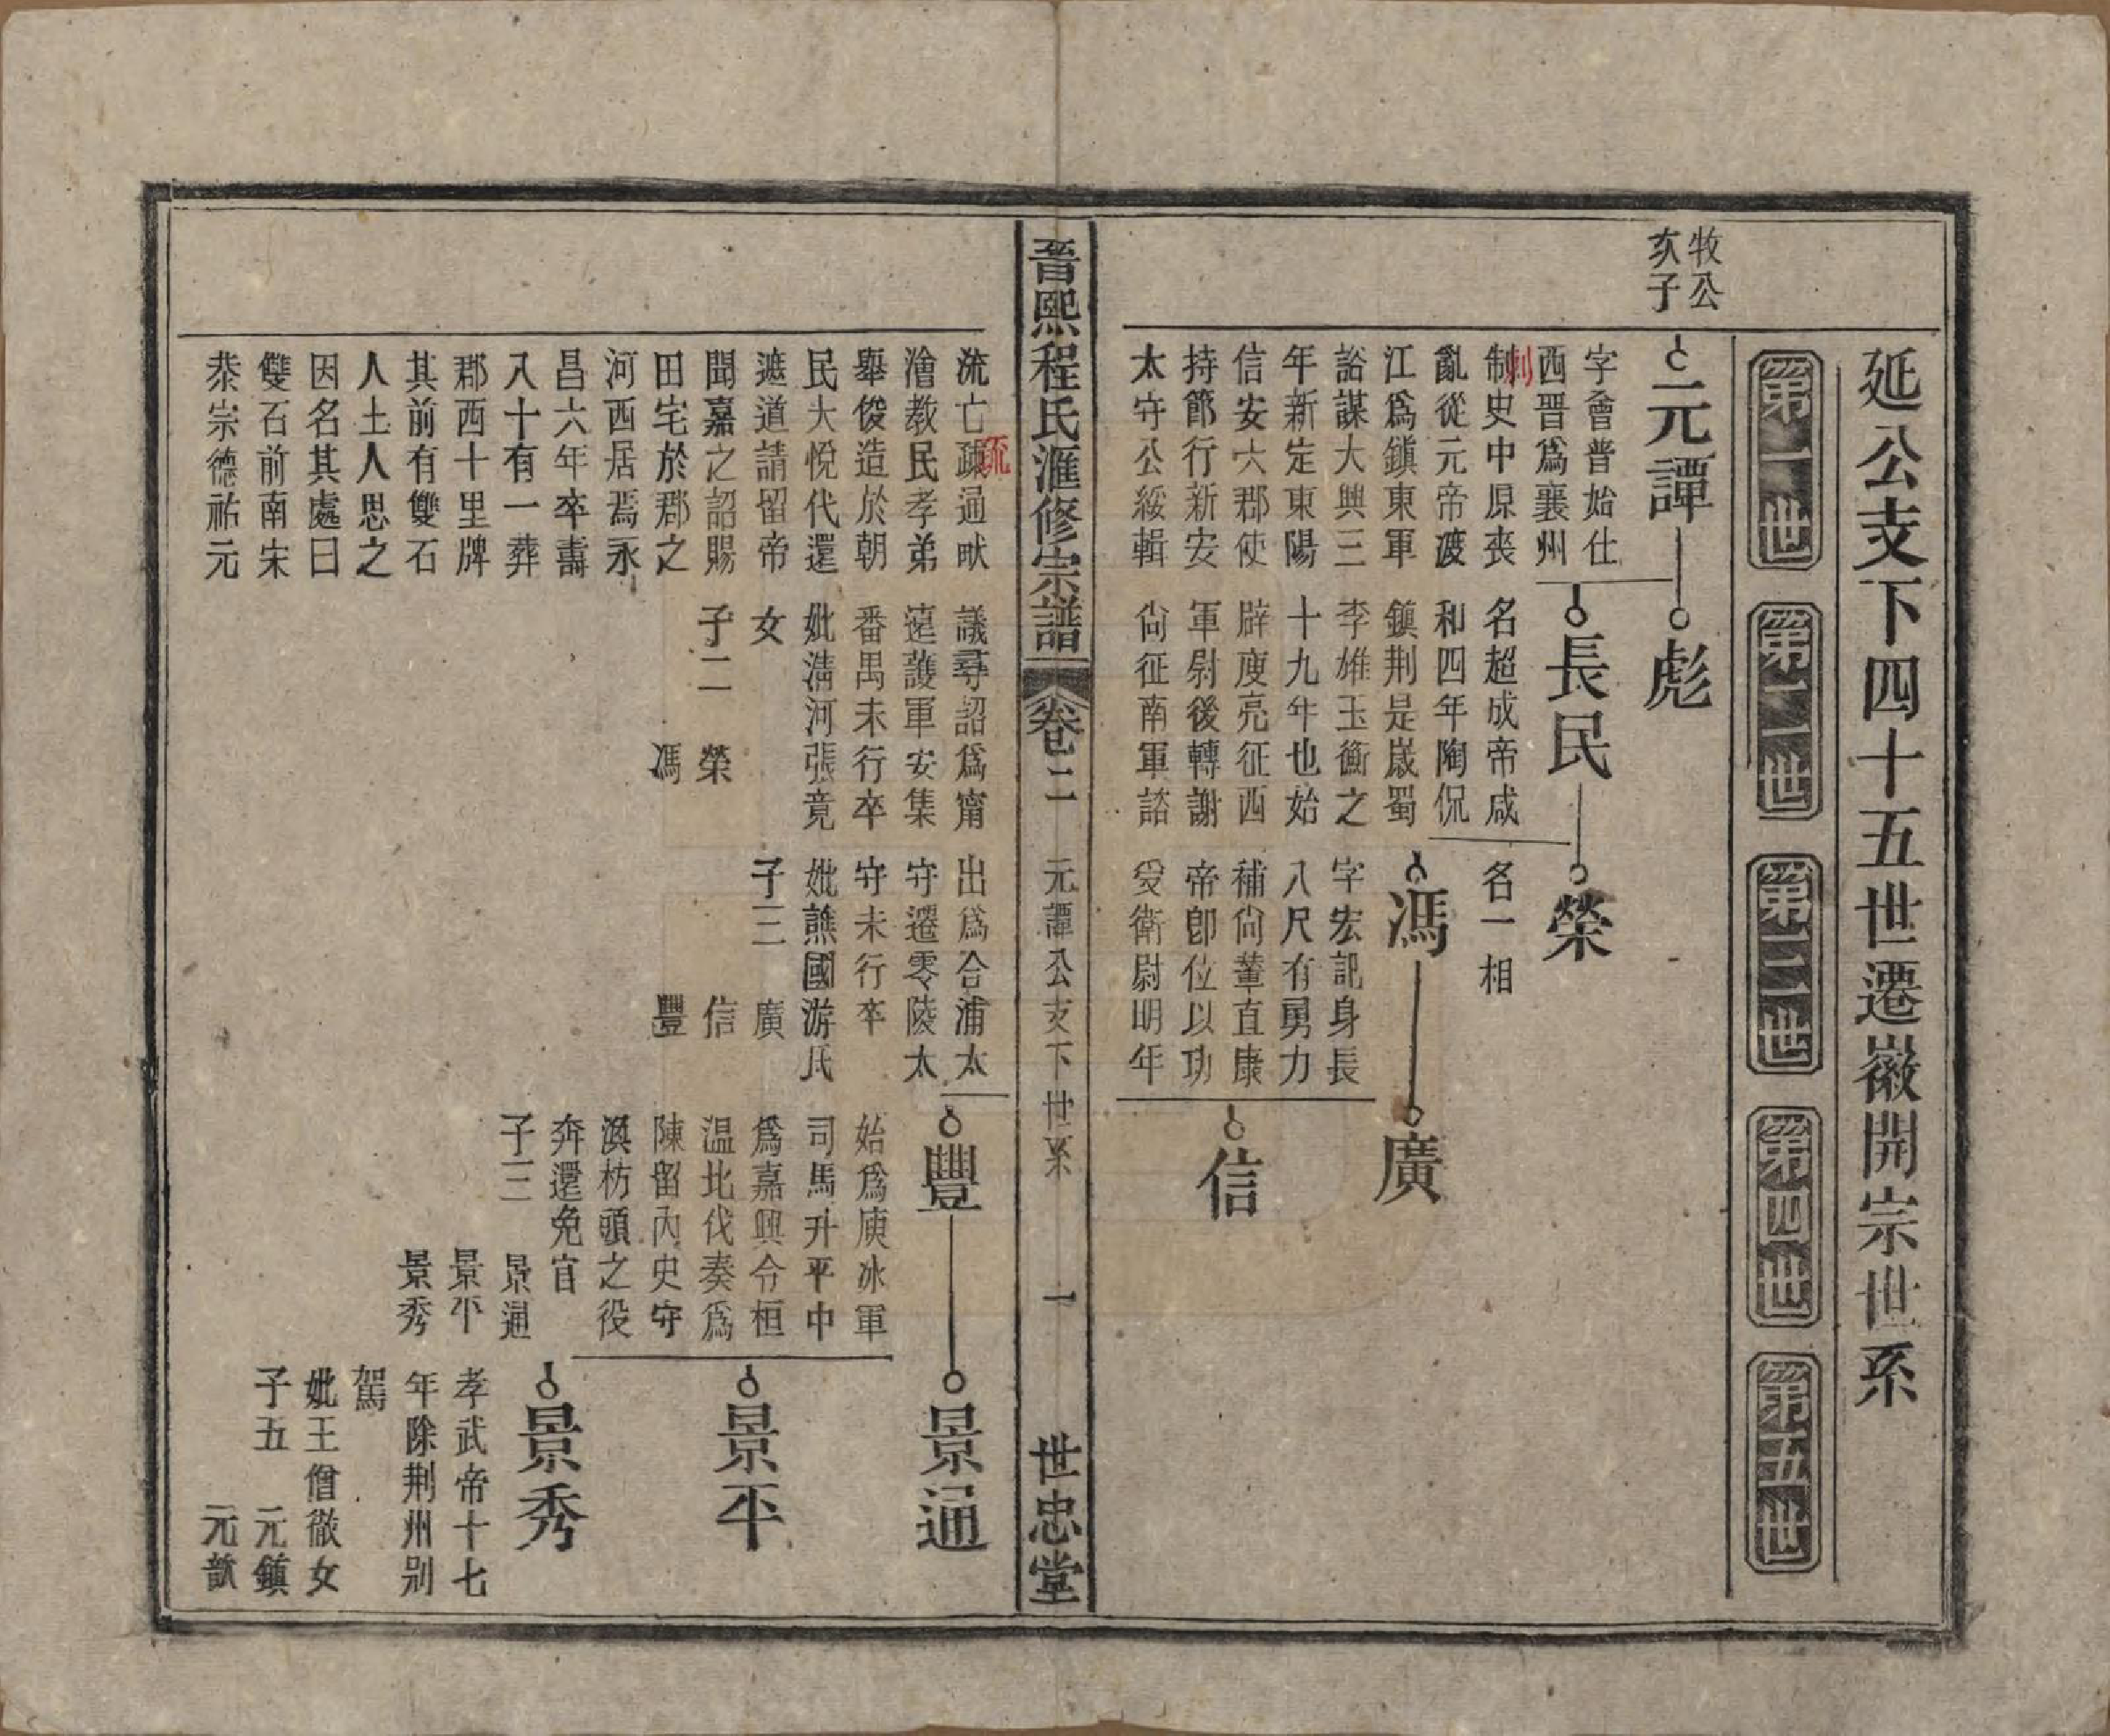 延公支下四十五世遷徽開宗世系
第一世
第二世
第三世
第四世
第五世
牧公
亥子
元譚
字會普始仕
西晉爲襄州
制史中原喪
刺
亂從元帝渡
江爲鎮東軍
諮謀大興三
年新定東陽
信安六郡使
持節行新安
太守公綏輯
彪
長民
名超成帝咸
和四年陶侃
鎮荆是歲蜀
李雄玉衡之
十九年也始
辟庾亮征西
軍尉後轉謝
尙征南軍諮
榮
名一相
馮
字宏訊身長
八尺有勇力
補尙輦直康
帝卽位以功
受衛尉明年
廣
信
晉熙程氏滙修宗譜
卷二
元譚公支下世系
一
世忠堂
流亡疏通畎
疏
澮教民孝弟
舉俊造於朝
民大悅代還
遮道請留帝
聞嘉之詔賜
田宅於郡之
河西居焉永
昌六年卒壽
八十有一葬
郡西十里牌
其前有雙石
人土人思之
因名其處曰
雙石前南宋
恭宗德祐元
議尋詔爲甯
遠護軍安集
番禺未行卒
妣淸河張竟
女
子二 榮
馮
出爲合浦太
守遷零陵太
守未行卒
妣譙國游氏
子三 廣
信
豐
豐
始爲庾冰軍
司馬升平中
爲嘉興令桓
温北伐奏爲
陳留內史守
淏枋頭之役
奔還免官
子三 景通
景平
景秀
景通
景平
景秀
孝武帝十七
年除荆州別
駕
妣王僧徹女
子五 元鎮
元歆